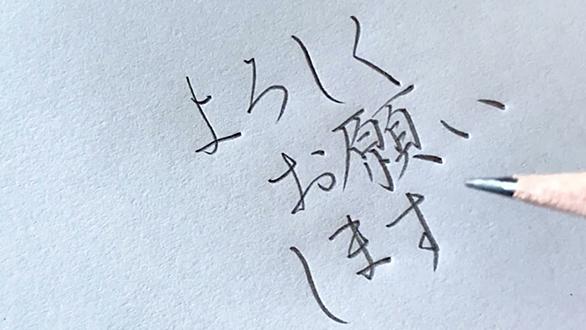 よろしく
お願い
します